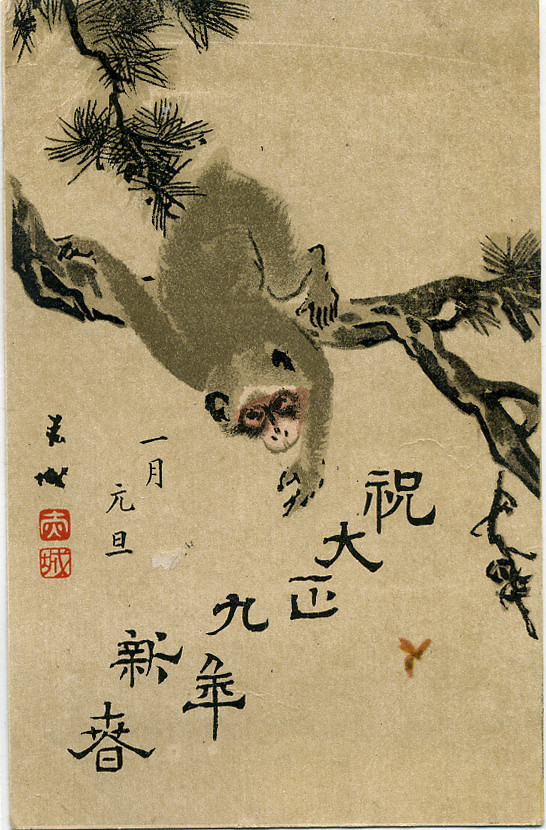 祝大正九年新春
一月元旦
赤城